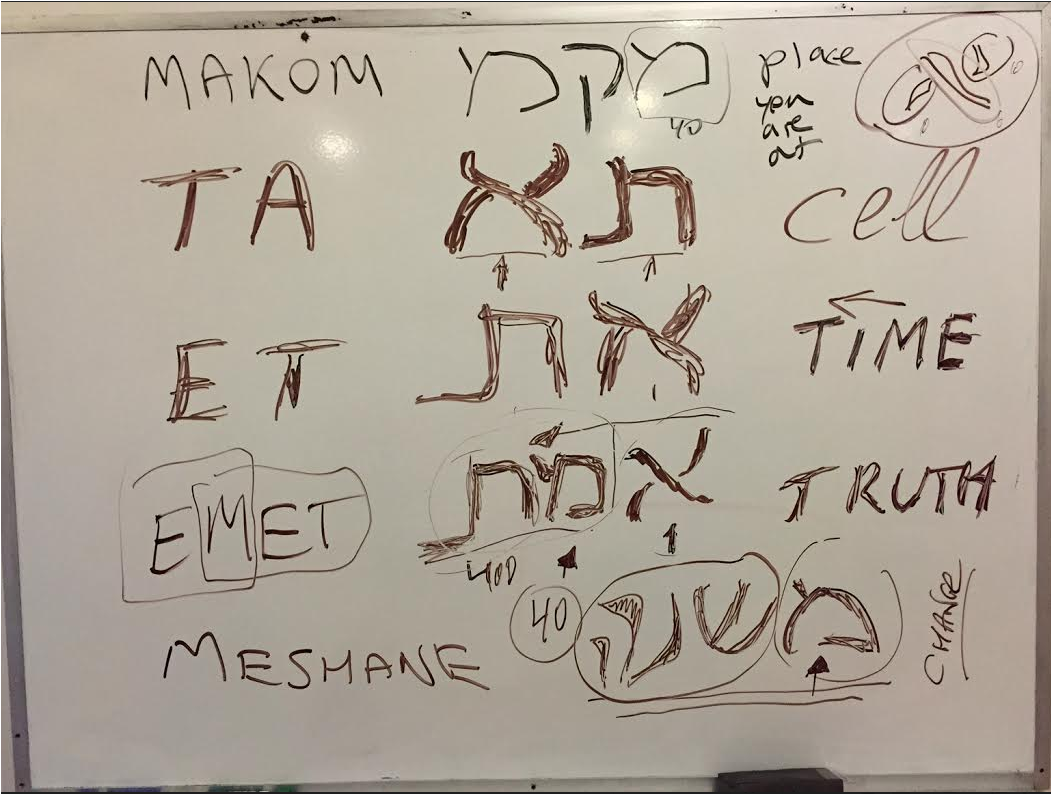 MAKOM מקמ place
40 you
are
at
TA תא cell
ET את TIME
EMET אמת TRUTH
400 1
MESHANE 40 משנה CHANGE